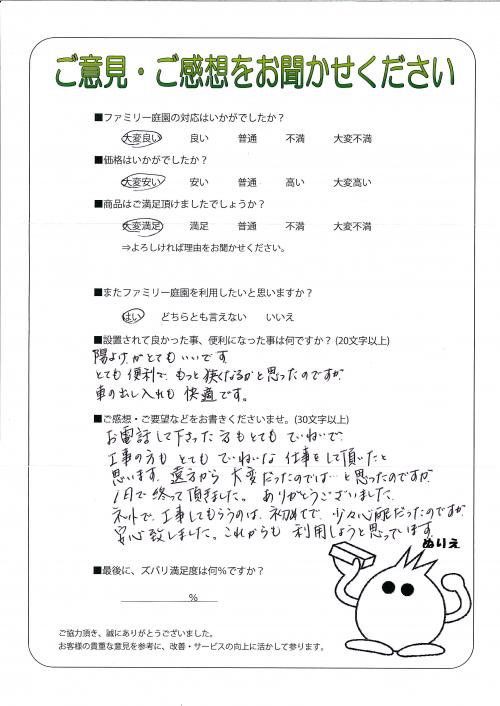 ご意見・ご感想をお聞かせください
■ファミリー庭園の対応はいかがでしたか？
大変良い 良い 普通 不満 大変不満
■価格はいかがでしたか？
大変安い 安い 普通 高い 大変高い
■商品はご満足頂けましたでしょうか？
大変満足 満足 普通 不満 大変不満
⇒よろしければ理由をお聞かせください。
■またファミリー庭園を利用したいと思いますか？
はい どちらとも言えない いいえ
■設置されて良かった事、便利になった事は何ですか？(20文字以上)
陽よけがとてもいいです
とても便利で、もっと狭くなるかと思ったのですが
車の出し入れも快適です。
■ご感想・ご要望などをお書きくださいませ。(30文字以上)
お電話して下さった方もとてもていねいで
工事の方もとてもていねいな仕事をして頂いたと
思います。遠方から大変だったのでは…と思ったのですが
1日で終って頂きました。ありがとうございました。
ネットで、工事してもらうのは、初めてで、少々心配だったのですが
安心致しました。これからも利用しようと思っています。
ぬりえ
■最後に、ズバリ満足度は何％ですか？
％
ご協力頂き、誠にありがとうございました。
お客様の貴重な意見を参考に、改善・サービスの向上に活かして参ります。